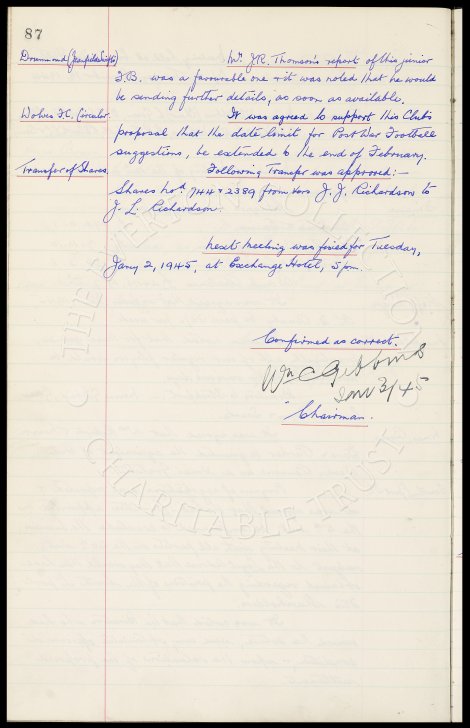 87
Drummond (Jeanfield Swifts) Mr. J.R. Thomson's report of this junior
F.B. was a favourable one & it was noted that he would
be sending further details, as soon as available.
Wolves F.C. Circular. It was agreed to support this Club's
proposal that the date limit for Post War Football
suggestions, be extended to the end of February.
Transfer of Shares. Following Transfer was approved:-
Shares Nos. 744 & 2389 from J. J. Richardson to
J. L. Richardson.
Next Meeting was fixed for Tuesday,
Jany 2, 1945, at Exchange Hotel, 5 pm.
Confirmed as correct.
Wm C Gibbins
Jan 3/45
Chairman.
© THE EVERTON COLLECTION
CHARITABLE TRUST ©